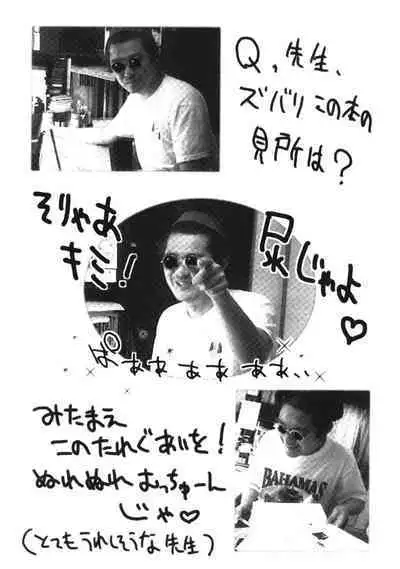 Q、先生、
ズバリこの本の
見所は?
そりゃあ
キミ!
尿じゃよ♡
ぱぁぁぁぁぁぁ、、
みたまえ
このたれぐあいを!
ぬれぬれむっちゅーん
じゃ♡
(とてもうれしそうな先生)
BAHAMAS